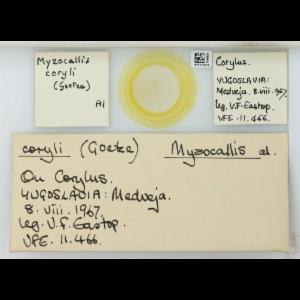 Myzocallis
coryli
(Goetze)
Al
Corylus.
YUGOSLAVIA:
Medveja. 8.viii.1967.
leg. V.F. Eastop.
VFE. 11.466.
coryli (Goetze) Myzocallis al.
On Corylus.
YUGOSLAVIA: Medveja.
8. viii. 1967.
leg. V.F. Eastop.
VFE. 11.466.